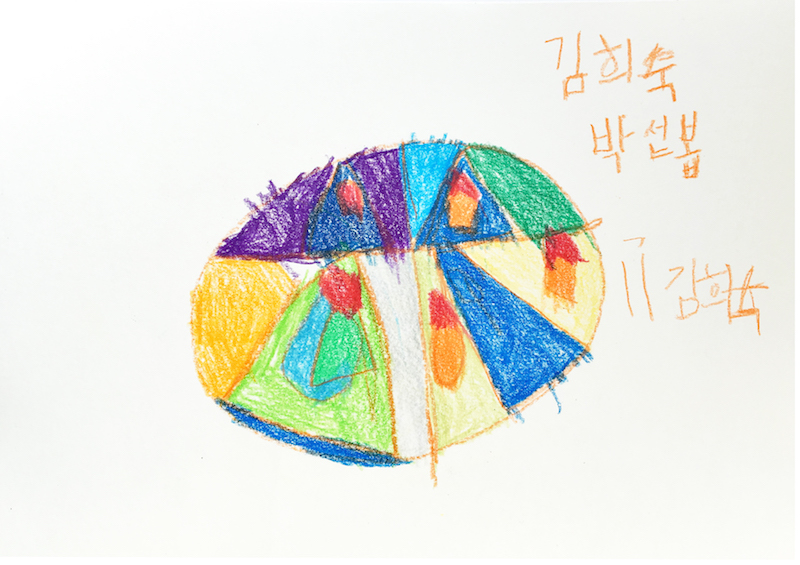 김희숙
박선봉
김희숙